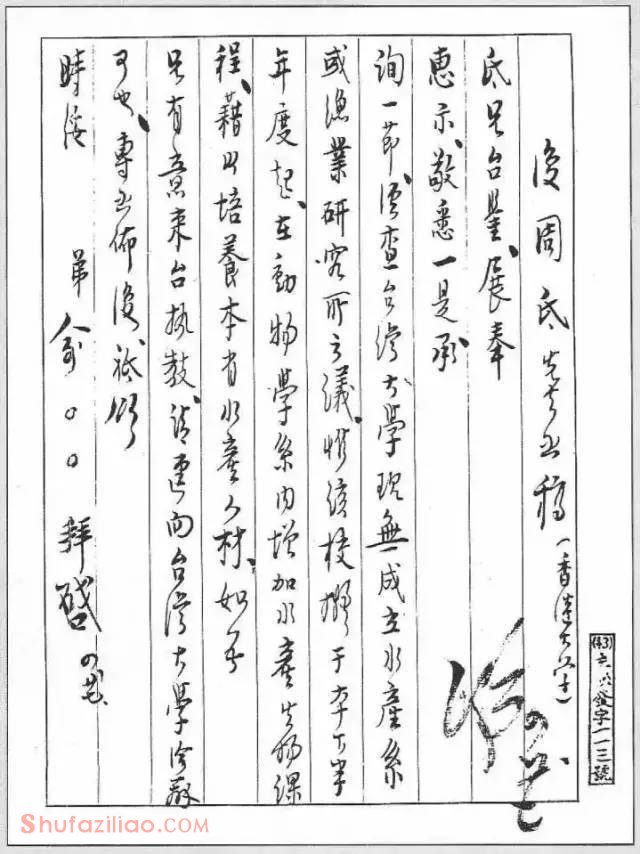 復周氐先生函稿（香港大學）
(43)
發字一一三號
氐兄台鑒、展奉
惠示、敬悉一是、承
詢一節、經查台灣大學現無成立水產系
或漁業研究所之議、惟該校擬于本下半
年度起、在動物學系內增加水產生物課
程、藉以培養本省水產人材、如吾
兄有意來台執教、請逕向台灣大學洽辦
可也、專函佈復、祗頌
時綏
弟俞○○拜啓
Shufaziliao.COM